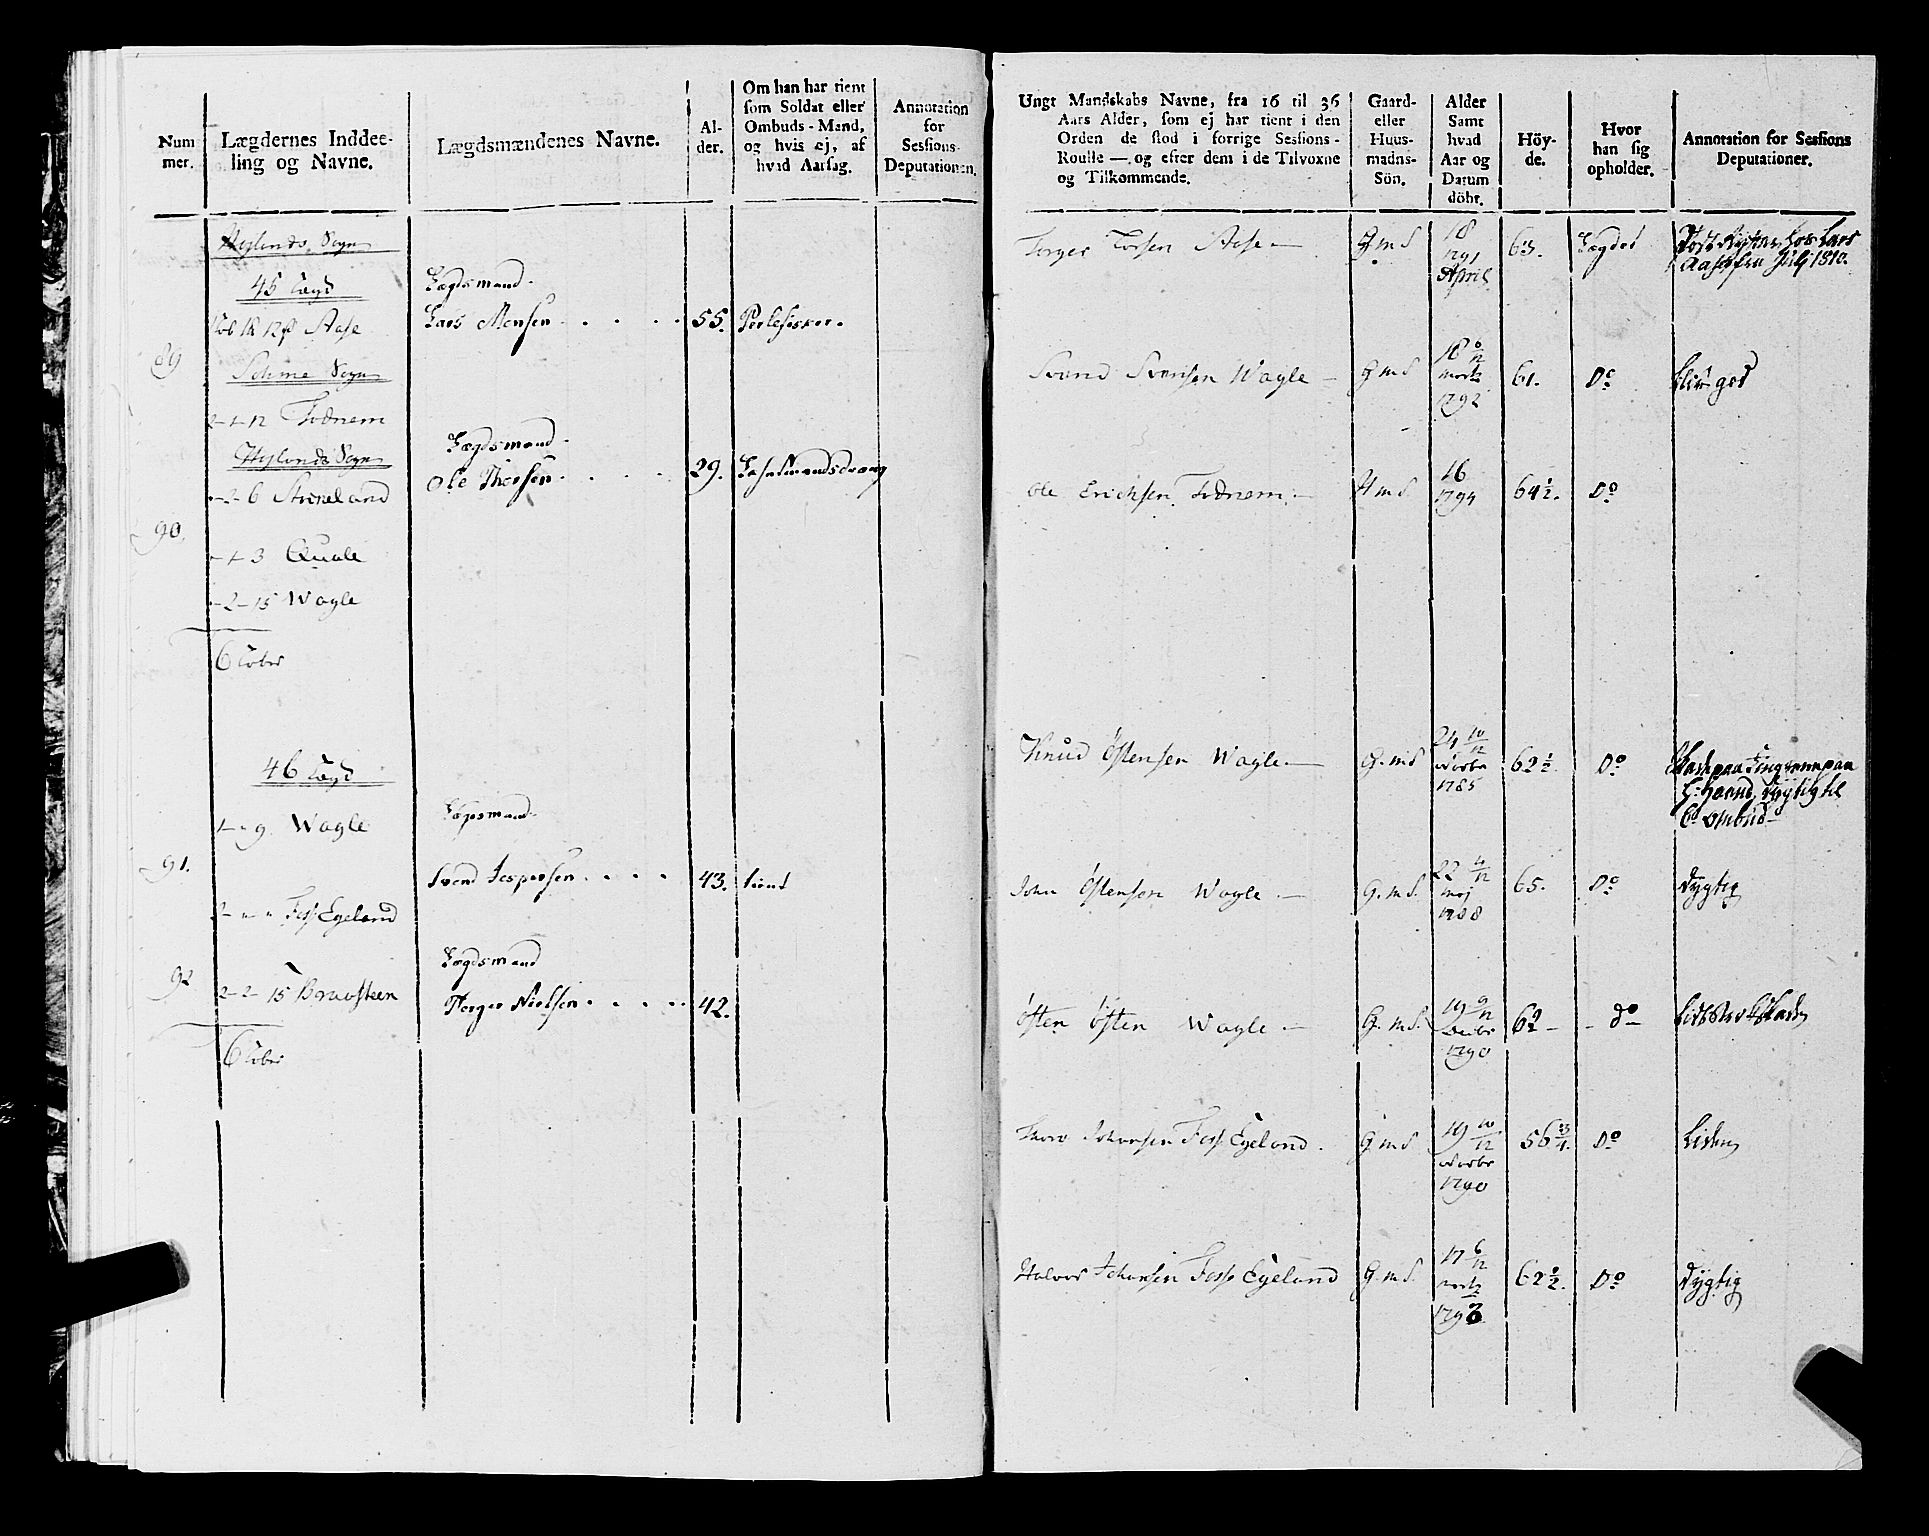 Num
mer.
Lægdernes Inddee-
ling og Navne.
Lægdsmændenes Navne.
Al-
der.
Om han har tient
som Soldat eller
Ombuds-Mand,
og hvis ej, af
hvad Aarsag.
Annotation
for
Sessions
Deputationen.
Hylands Sogn
45 Lægd
Lægdsmand.
Aase
Lars Monsen
55.
Perlefisker.
89
Sohme Sogn
2-1-12 Fodnem
Hylands Sogn
Lægdsmand.
Ole Thorsen
29.
-2-6 Skieveland
90.
-1-3 Quale
-2-15 Wagle
6 Løber
46 Lægd
1-"-9 Wagle
Lægsmand.
91.
Svend Jespersen
43.
tient
3-"-" Foss Egeland
Lægdsmand
92
2-2-15 Bravsteen
Torger Nielsen
42.
6 Løber
Ungt Mandskabs Navne, fra 16 til 36
Aars Alder, som ej har tient i den
Orden de stod i forrige Sessions-
Roulle — og efter dem i de Tilvoxne
og Tilkommende.
Gaard-
eller
Huus-
mands-
Sön.
Alder
Samt
hvad
Aar og
Datum
döbt.
Höy-
de.
Hvor
han sig
opholder.
Annotation for Sessions
Deputationer.
Torger Torsen Aase —
G m S
18
1791
April
63.
Lægdet
Julj 1810.
Svend Svensen Wagle —
G m S
18
Marts
1792
61.
Do
Ole Erichsen Fodnem —
H m S
16
1794
64 1/2.
Do
Knud Östensen Wagle —
G. m S
24 10/12
Novbr
1785
62 1/2
Do
John Östensen Wagle —
G. m S.
22 4/12
Maj
1788
65.
Do
dygtig
Östen Östen Wagle —
G. m S.
19 9/12
Decbr
1790
62 —
do
Johansen Foss Egeland.
G m S
19 10/12
Novbr
1790
56 3/4.
Do
liden
Halvor Johansen Foss Egeland
G. m S.
17 6/12
Marts
62 1/2.
Do
dygtig